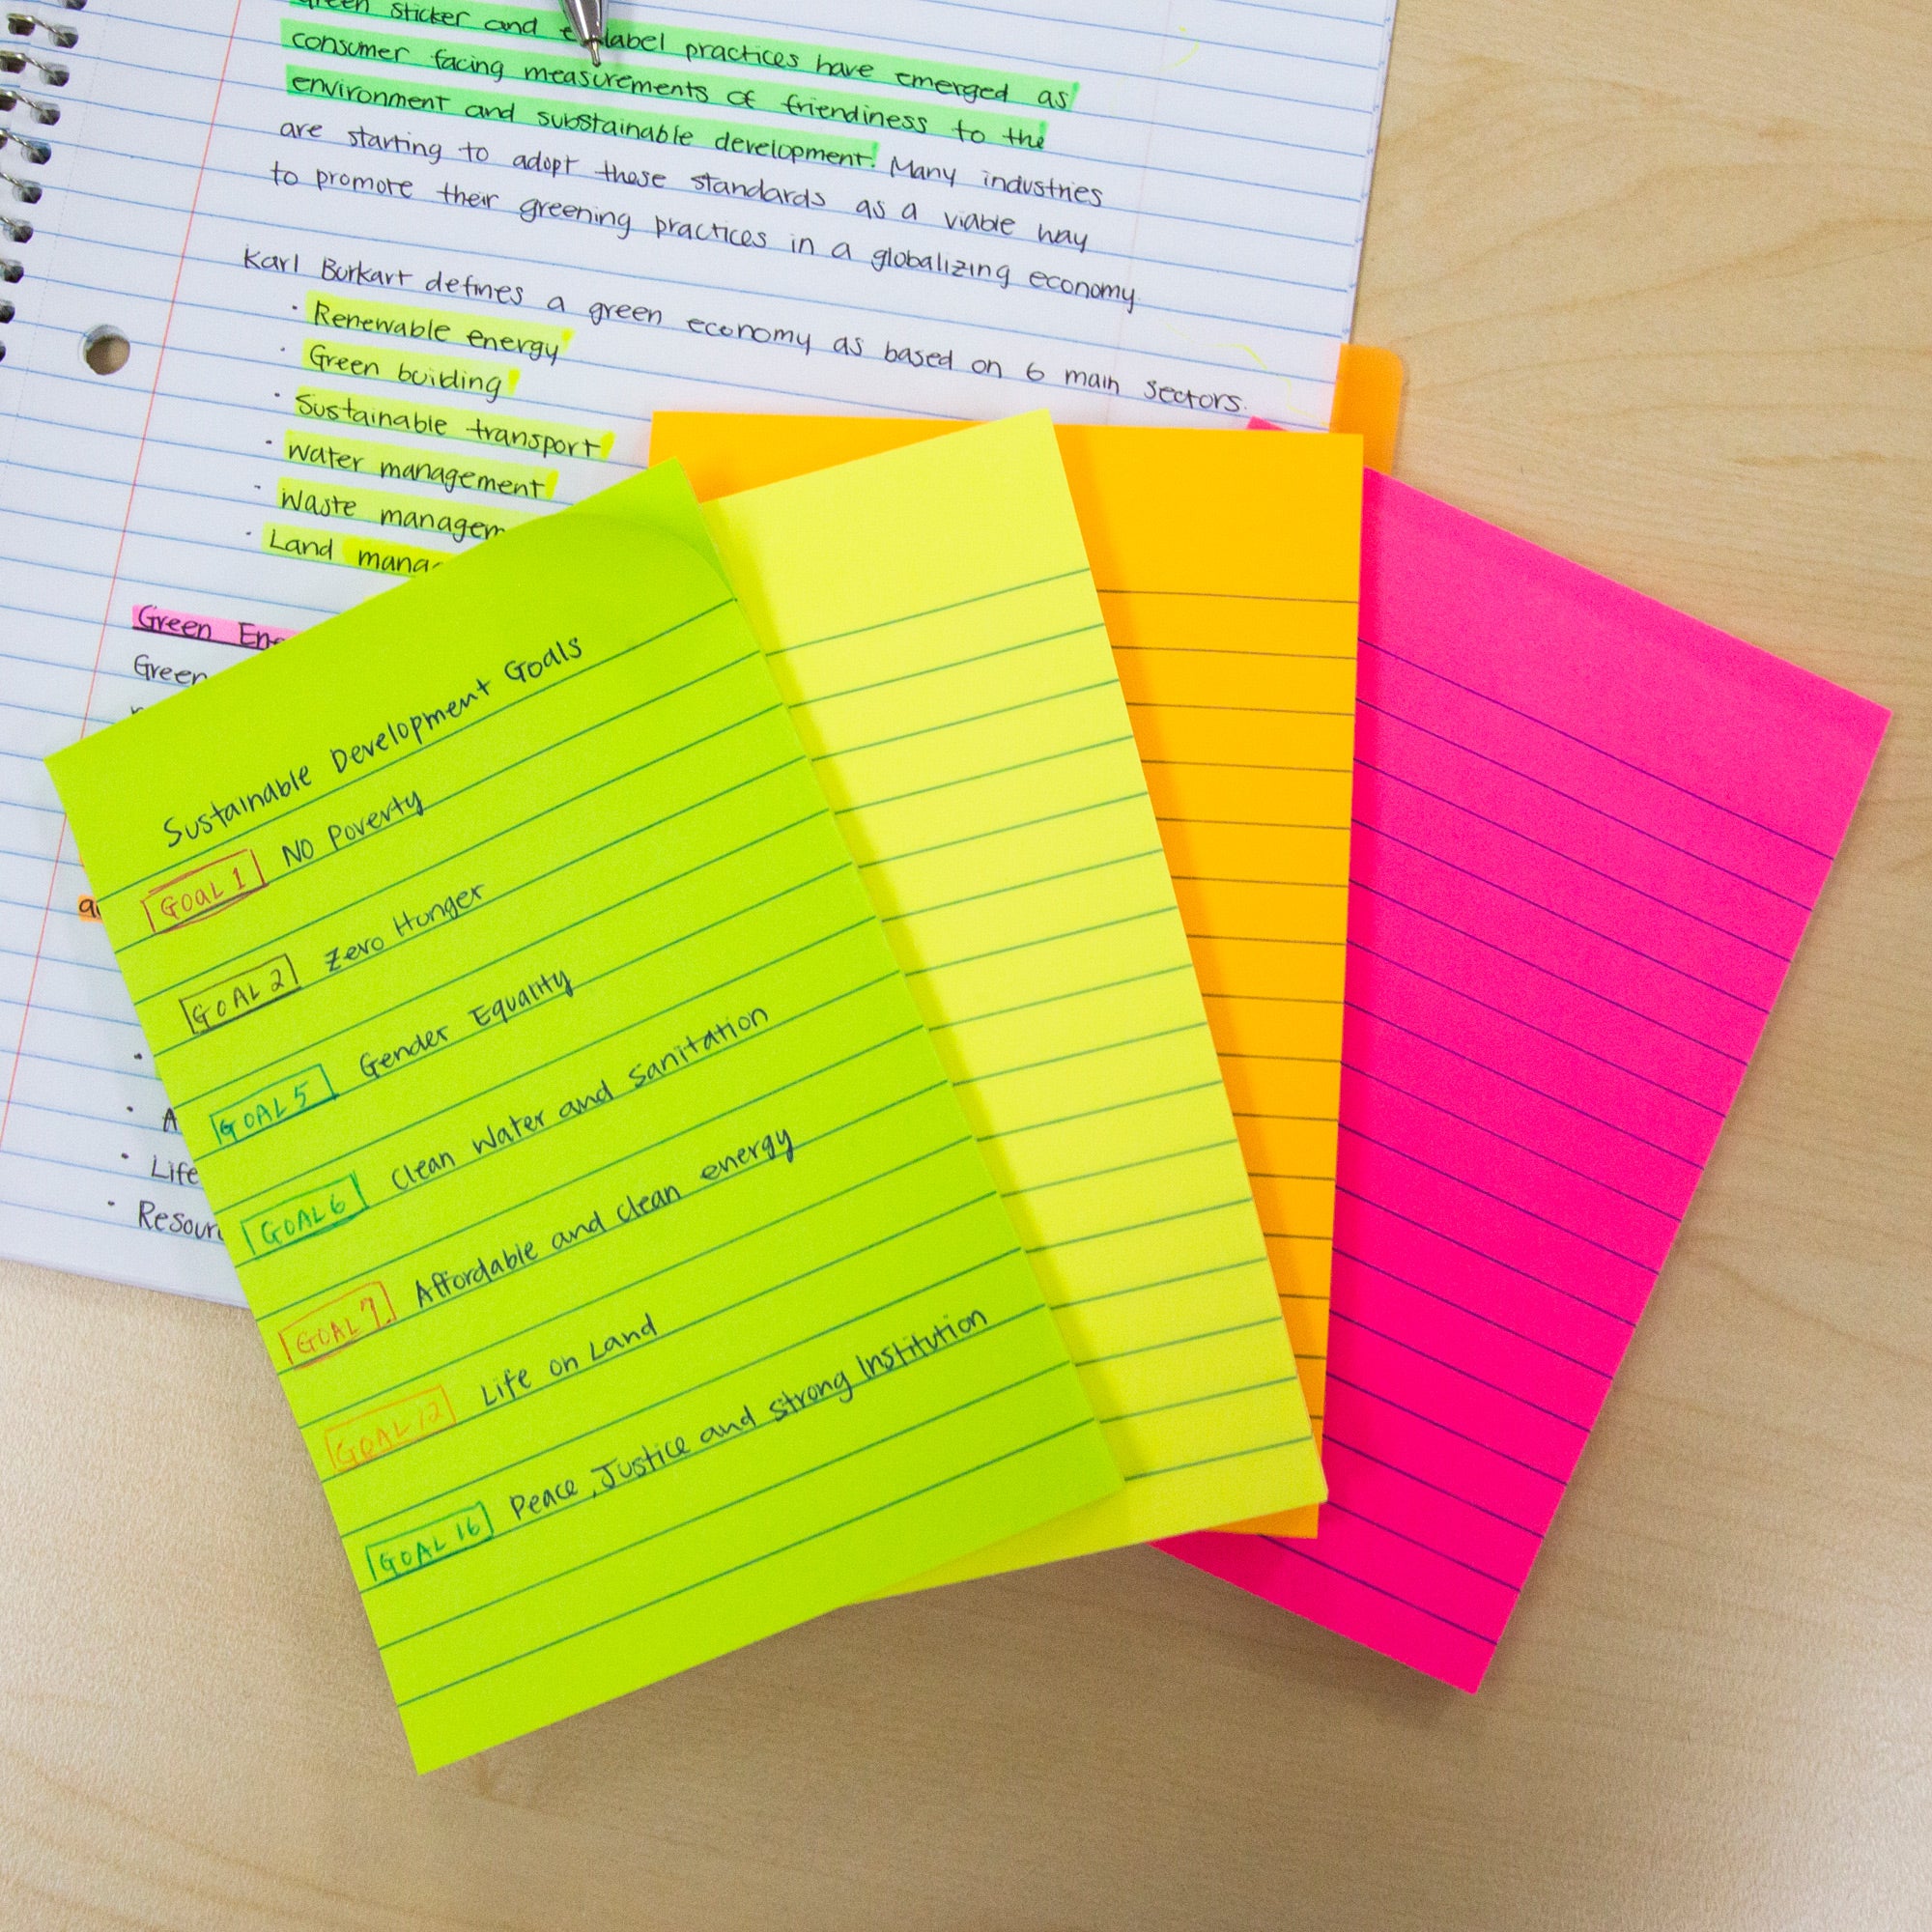 green sticker and label practices have emerged as
consumer facing measurements of friendiness to the
environment and substainable development. Many industries
are starting to adopt these standards as a viable way
to promote their greening practices in a globalizing economy.
Karl Burkart defines a green economy as based on 6 main sectors.
· Renewable energy
· Green building
· Sustainable transport
· water management
· Waste managem
· Land mana
Green En
Green
A
· Life
· Resour
Sustainable Development Goals
GOAL 1 NO Poverty
GOAL 2 Zero Hunger
GOAL 5 Gender Equality
GOAL 6 Clean Water and Sanitation
GOAL 7 Affordable and clean energy
GOAL 12 Life on Land
GOAL 16 Peace, Justice and strong Institution